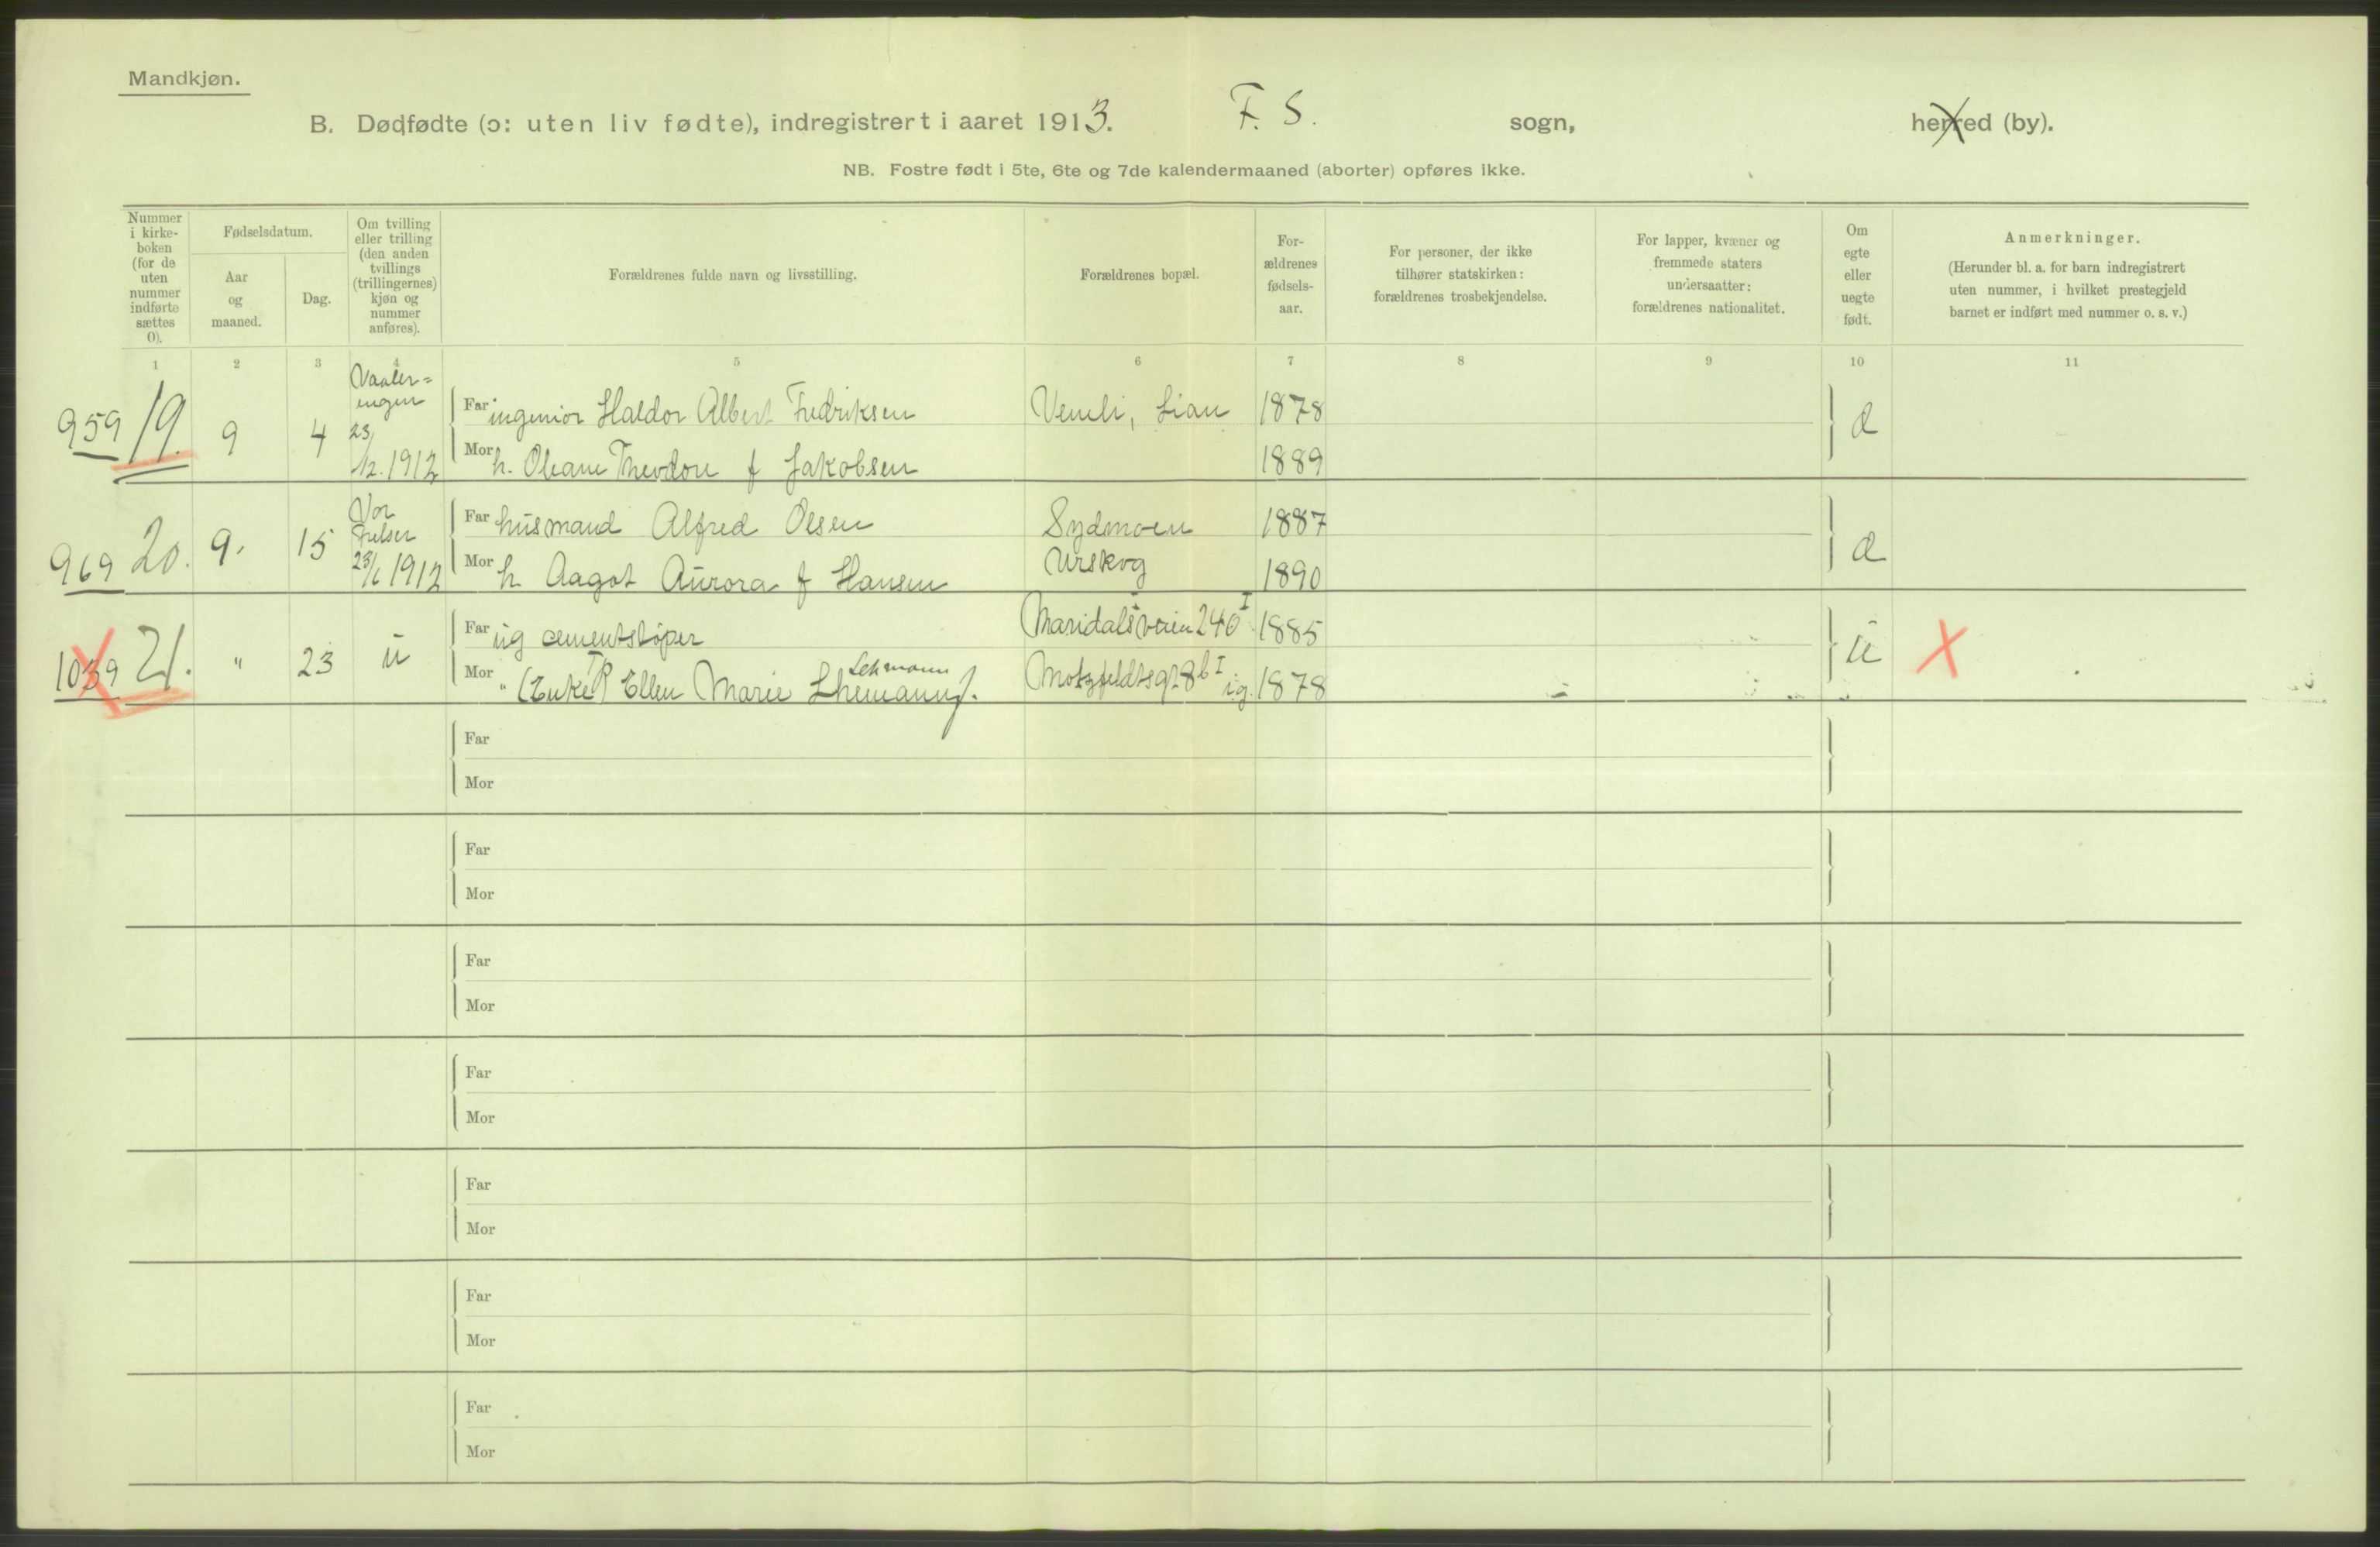 Mandkjøn.
B. Dødfødte (ɔ: uten liv fødte), indregistrert i aaret 1913. F. S. sogn, herred (by).
NB. Fostre født i 5te, 6te og 7de kalendermaaned (aborter) opføres ikke.
Nummer i kirke-boken (for de uten nummer indførte sættes 0).
Fødselsdatum.
Aar og maaned.
Dag.
Om tvilling eller trilling (den anden tvillings (trillingernes) kjøn og nummer anføres).
Forældrenes fulde navn og livsstilling.
Forældrenes bopæl.
For-ældrenes fødsels-aar.
For personer, der ikke tilhører statskirken: forældrenes trosbekjendelse.
For lapper, kvæner og fremmede staters undersaatter: forældrenes nationalitet.
Om egte eller uegte født.
Anmerkninger.
(Herunder bl. a. for barn indregistrert uten nummer, i hvilket prestegjeld barnet er indført med nummer o. s. v.)
1 2 3 4 5 6 7 8 9 10 11
959 19. 9 4 Vaaler=engen 23/12. 1912
Far ingeniør Haldor Albert Fredriksen 1878
Mor h. Oleane f Jakobsen 1889
969 20. 9. 15 Vor Frelser 23/6 1912
Far husmand Alfred Olsen Sydmoen 1887
Mor h Aagot Aurora f Hansen Urskog 1890
1039 21. " 23 u
Far ug cementstøper Maridalsveien 240 I 1885
Lehmann
Mor " (Enke) Ellen Marie Lhemann f. Motzfeldtsg 28 b I ug. 1878
u X
Far
Mor
Far
Mor
Far
Mor
Far
Mor
Far
Mor
Far
Mor
Far
Mor